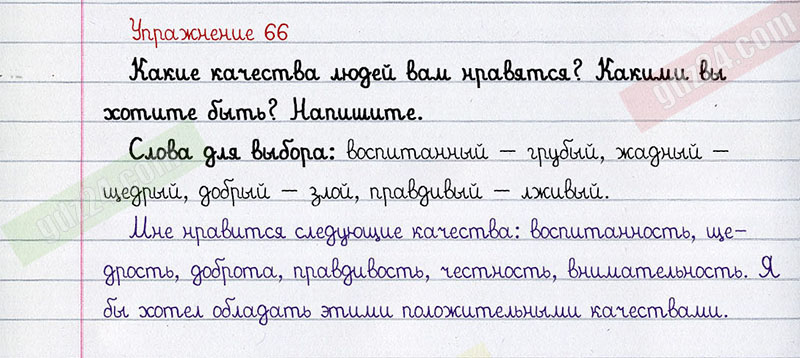 Упражнение 66
Какие качества людей вам нравятся? Какими вы
хотите быть? Напишите.
Слова для выбора: воспитанный – грубый, жадный –
щедрый, добрый – злой, правдивый – лживый.
Мне нравится следующие качества: воспитанность, ще-
дрость, доброта, правдивость, честность, внимательность. Я
бы хотел обладать этими положительными качествами.
gdz24.com
gdz24.com